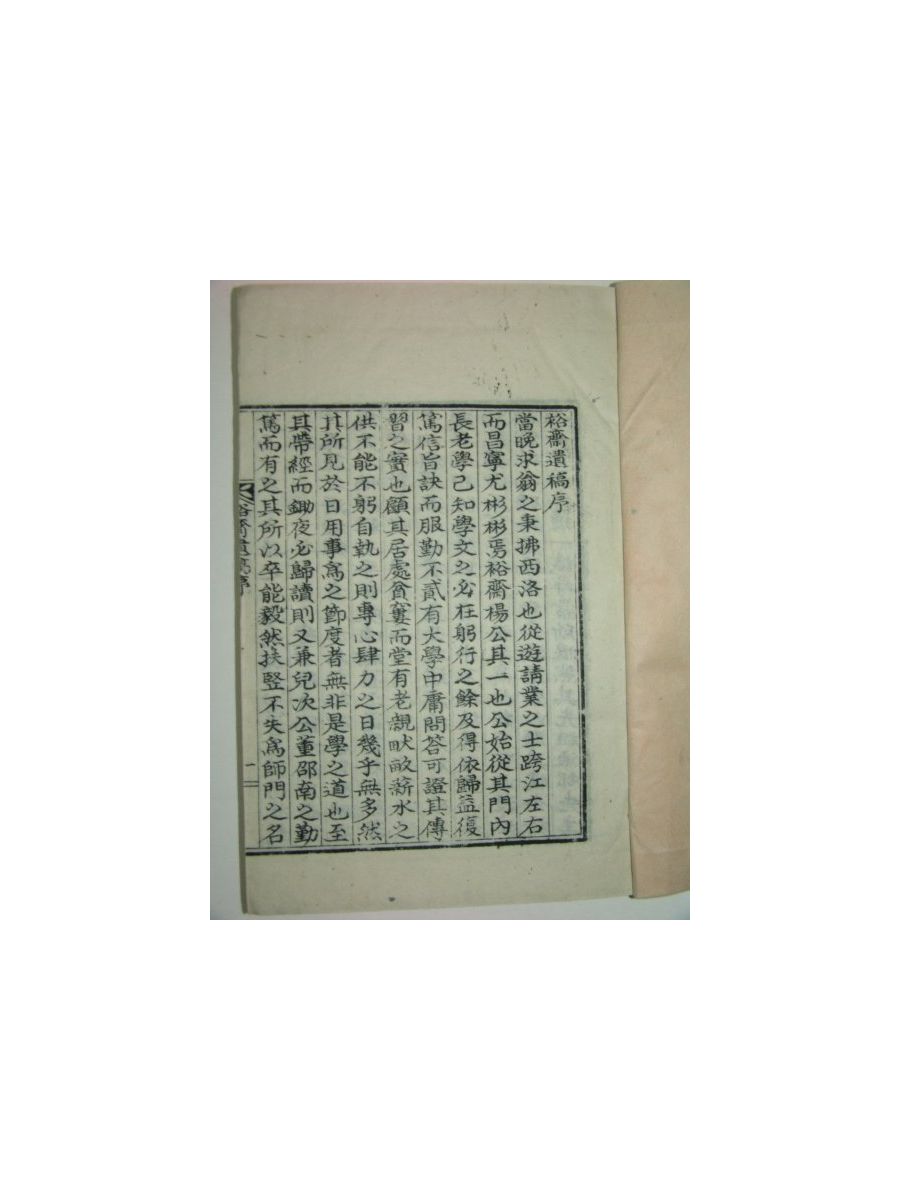 裕齋遺稿序
當晩求翁之秉拂西洛也從遊請業之士跨江左右
而昌寧尤彬彬焉裕齋楊公其一也公始從其門內
長老學已知學文之必在躬行之餘及得依歸益復
篤信旨訣而服勤不貳有大學中庸問答可證其傳
習之實也顧其居處貧窶而堂有老親畎畝薪水之
供不能不躬自執之則專心肆力之日幾乎無多然
其所見於日用事爲之節度者無非是學之道也至
其帶經而鋤夜必歸讀則又兼兒次公董邵南之勤
篤而有之其所以卒能毅然扶竪不失爲師門之名
裕齋遺稿序
一